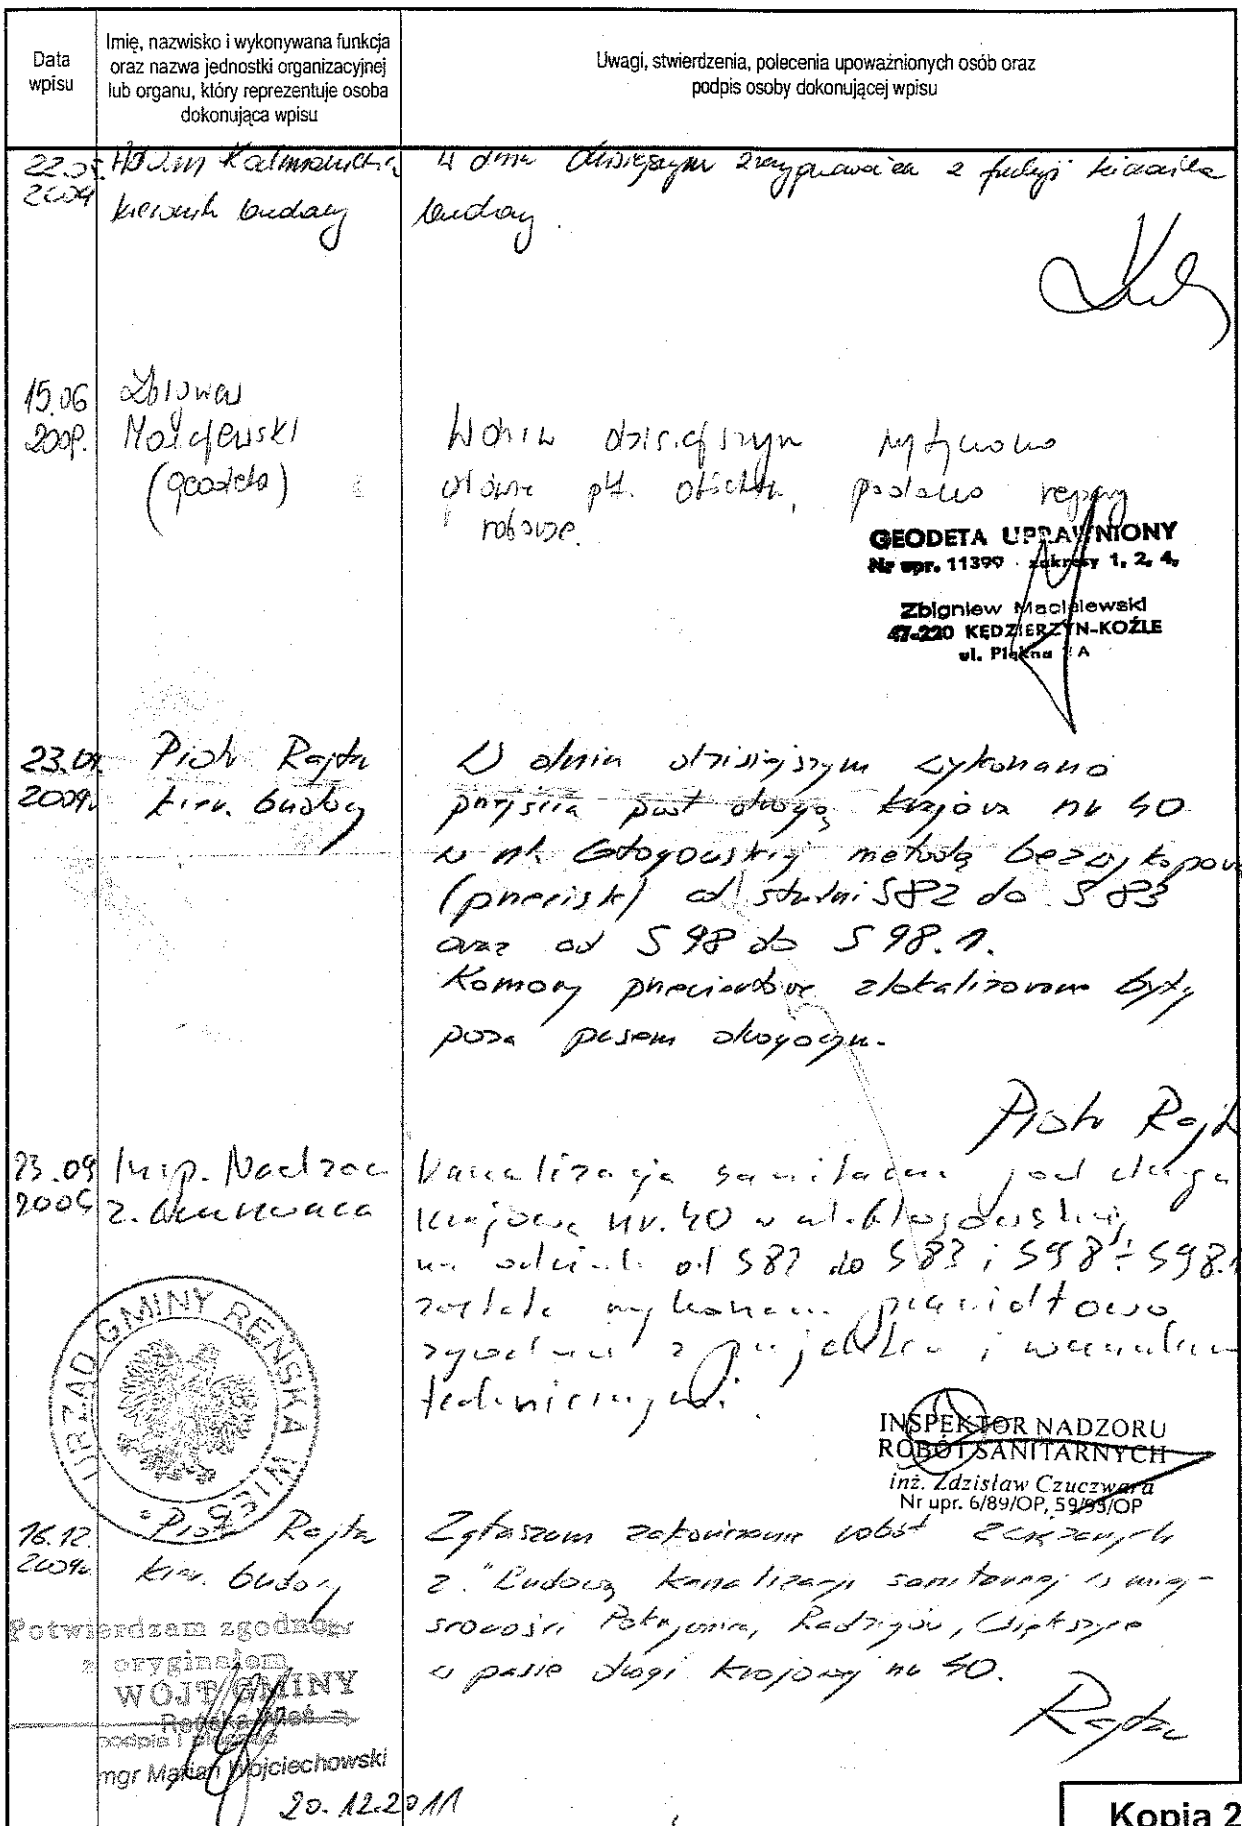 Data
wpisu
Imię, nazwisko i wykonywana funkcja
oraz nazwa jednostki organizacyjnej
lub organu, który reprezentuje osoba
dokonująca wpisu
Uwagi, stwierdzenia, polecenia upoważnionych osób oraz
podpis osoby dokonującej wpisu
2009
kierownik budowy
W dniu dzisiejszym z funkcji kierownika
budowy.
15.06
2009.
(geodeta)
W dniu dzisiejszym wytyczono
główne pkt. podano repery
robocze.
GEODETA UPRAWNIONY
Nr upr. 11399 zakresy 1, 2, 4,
Zbigniew Maciejewski
47-220 KĘDZIERZYN-KOŹLE
ul. Piękna A
23.09
2009r.
Piotr Rajta
kier. budowy
W dniu dzisiejszym wykonano
przejścia pod drogą krajową nr 40
w ul. Głogowskiej metodą bezwykopową
(przecisk) od studni S82 do S83
oraz od S98 do S98.1.
Komory przeciskowe zlokalizowane były
poza pasem drogowym.
Piotr Rajta
23.09
2009
Insp. Nadzoru
Kanalizacja sanitarna pod drogą
krajową nr. 40 w ul. Głogowskiej
na odcinku od S82 do S83 i S98÷S98.1
została wykonana prawidłowo,
zgodnie z projektem i warunkami
technicznymi.
INSPEKTOR NADZORU
ROBÓT SANITARNYCH
inż. Zdzisław Czuczwara
Nr upr. 6/89/OP, 59/93/OP
URZĄD GMINY REŃSKA WIEŚ
16.12.
2009r.
Piotr Rajta
kier. budowy
Zgłaszam zakończenie robót związanych
z "Budową kanalizacji sanitarnej w miej-
scowości Pokrzywnica, Radziejów, Większyce
w pasie drogi krajowej nr 40.
Rajta
Potwierdzam zgodność
z oryginałem
WÓJT GMINY
Reńska Wieś
podpis i pieczęć
mgr Marian Wojciechowski
20.12.2011
Kopia 2